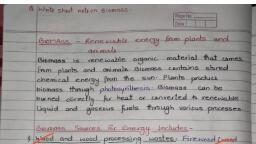 Q Write short note on Biomass.
Page No.
Date
BIOMASS - Renewable energy from plants and
animals
Biomass is renewable organic material that comes
from plants and animals. Biomass contains stored
chemical energy from the sun. Plants produce
biomass through photosynthesis. Biomass can be
burned directly for heat or converted to renewable
liquid and gaseous fuels through various processes.
Biomass Sources for Energy Includes -
Wood and wood processing wastes: Firewood, wood